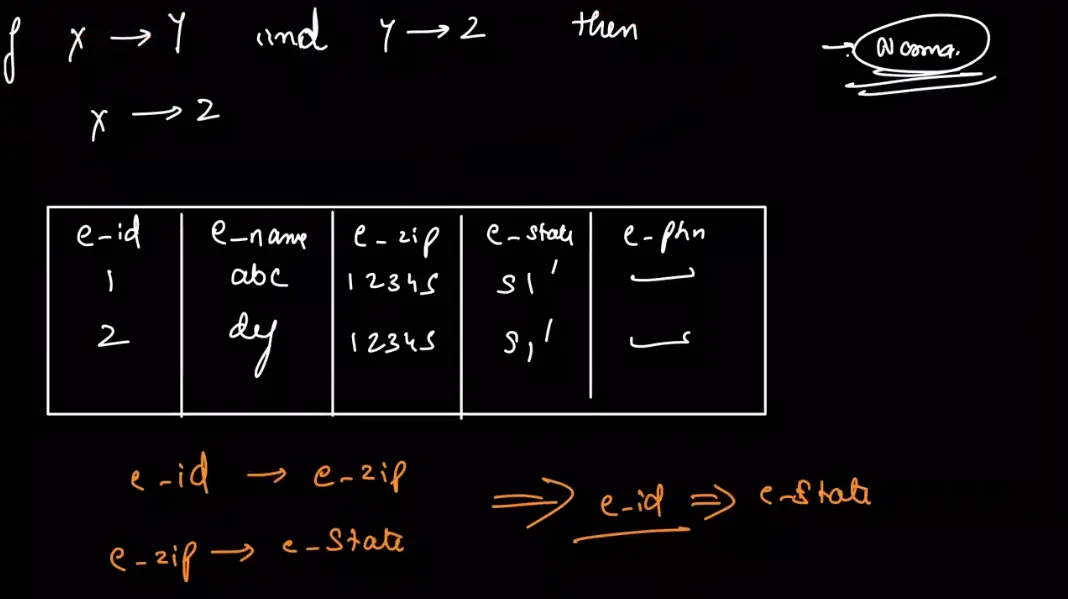 if X → Y and Y → Z then
→ Norma.
X → Z
e-id e-name e-zip e-state e-phn
1 abc 12345 S1'
2 def 12345 S1'
e-id → e-zip
⇒ e-id ⇒ e-state
e-zip → e-state